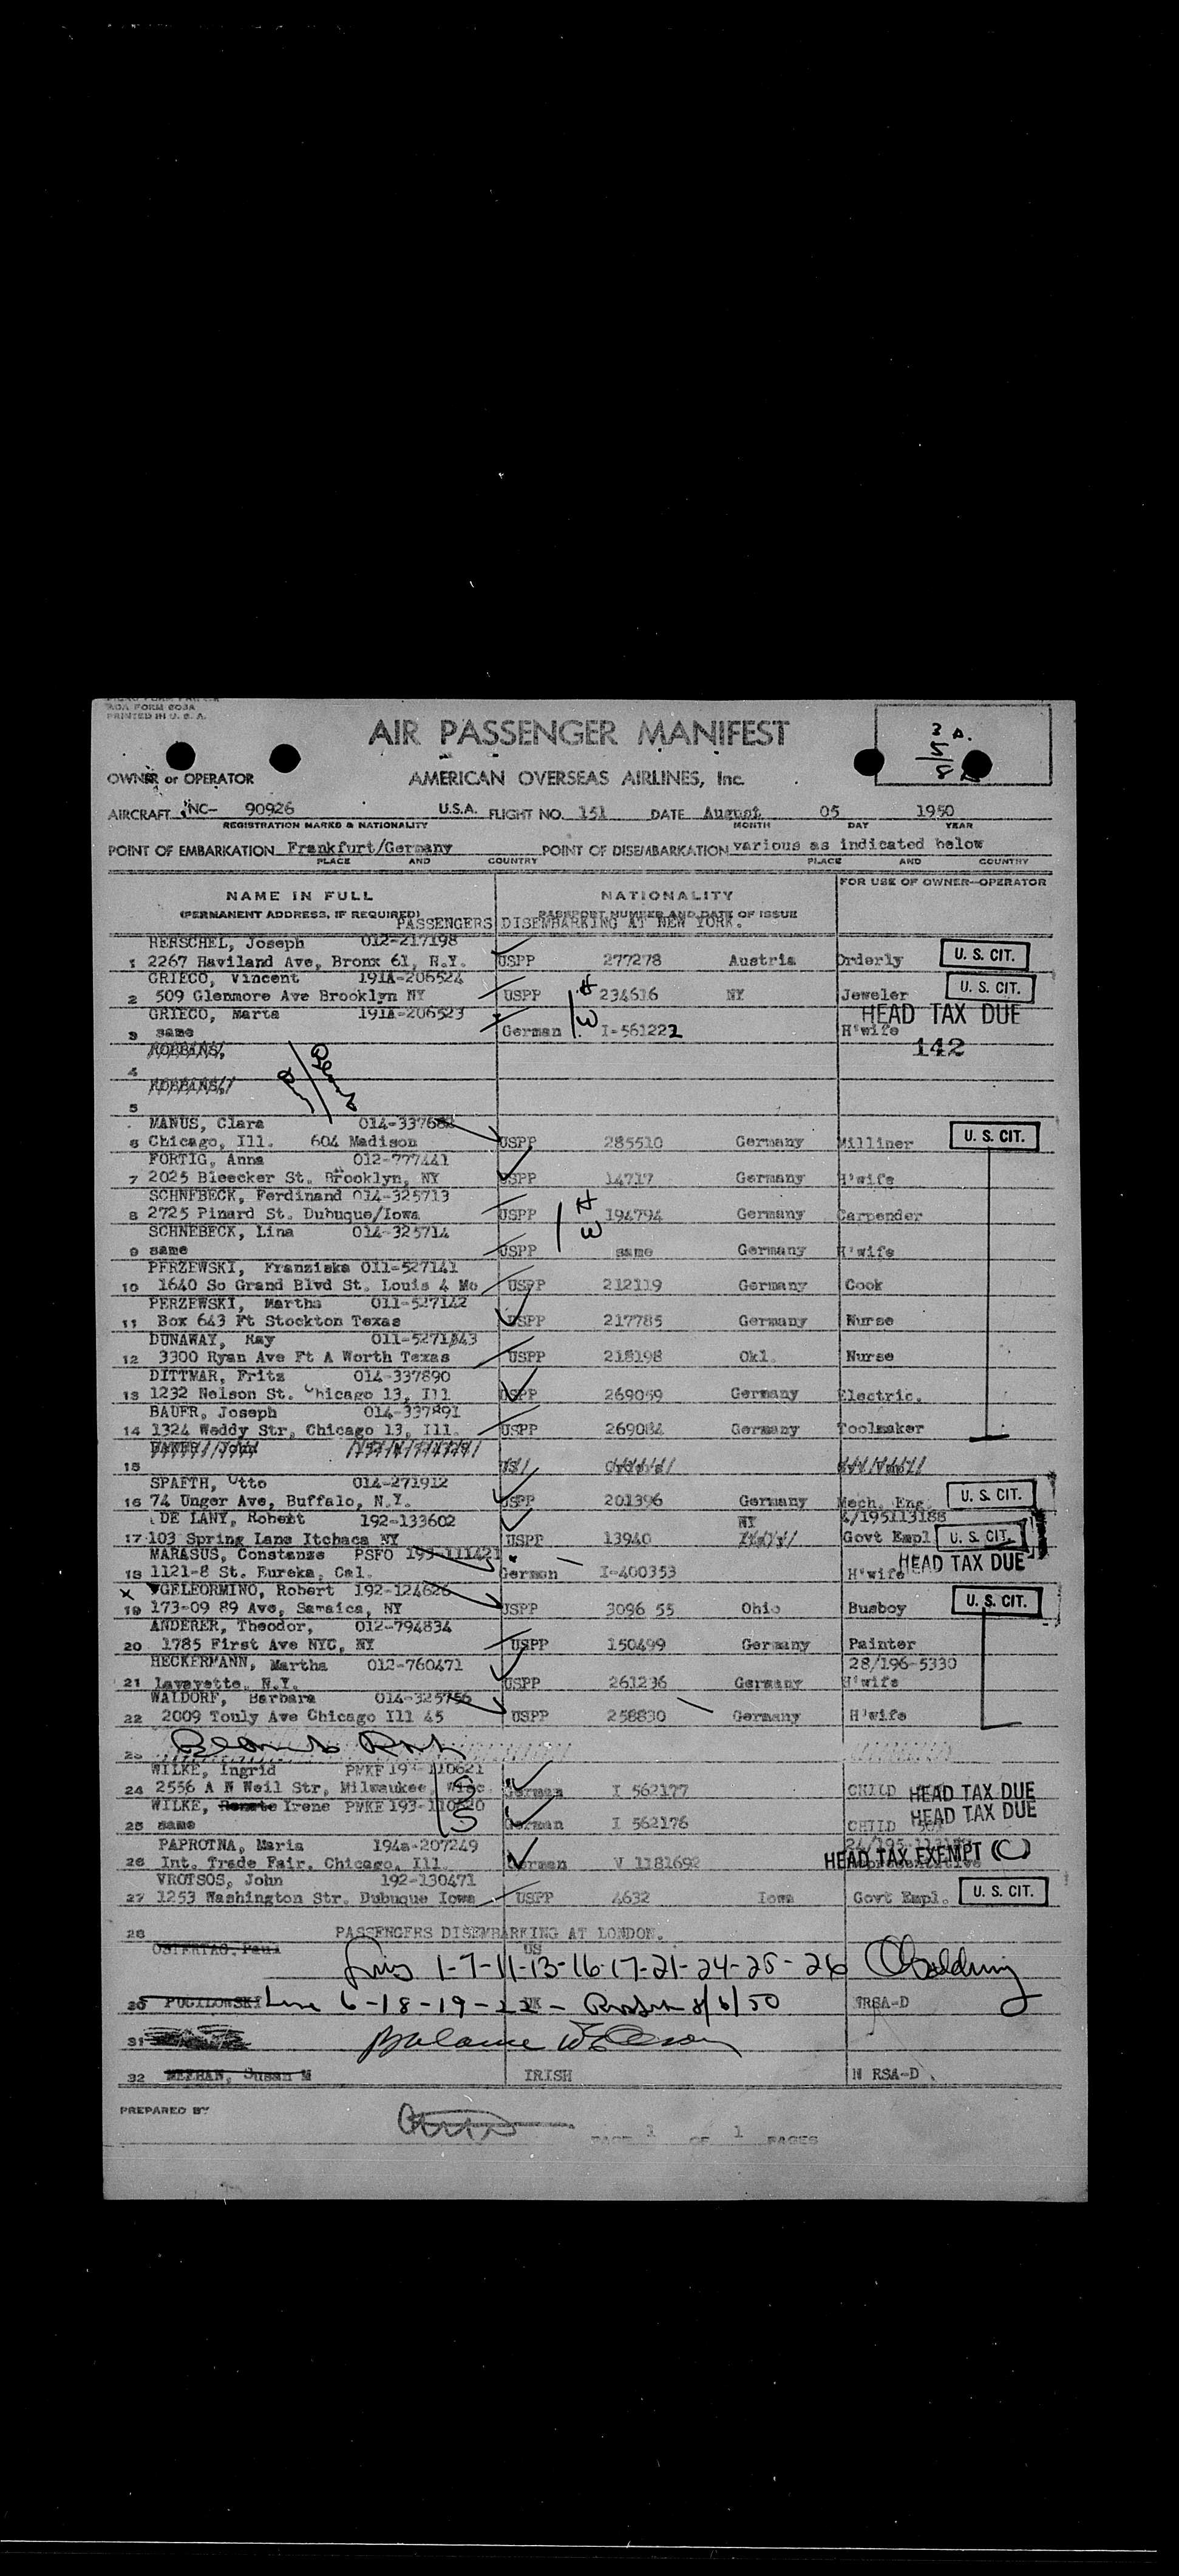 AOA FORM 603A
PRINTED IN U. S. A.
AIR PASSENGER MANIFEST
OWNER or OPERATOR AMERICAN OVERSEAS AIRLINES, Inc.
AIRCRAFT NC- 90926 U.S.A. FLIGHT NO. 151 DATE August 05 1950
REGISTRATION MARKS & NATIONALITY MONTH DAY YEAR
POINT OF EMBARKATION Frankfurt/Germany POINT OF DISEMBARKATION various as indicated below
PLACE AND COUNTRY PLACE AND COUNTRY
NAME IN FULL NATIONALITY FOR USE OF OWNER-OPERATOR
(PERMANENT ADDRESS, IF REQUIRED) PASSPORT NUMBER AND DATE OF ISSUE
PASSENGERS DISEMBARKING AT NEW YORK.
HERSCHEL, Joseph 012-217198
1 2267 Haviland Ave, Bronx 61, N.Y. USPP 277278 Austria Orderly U. S. CIT.
GRIECO, Vincent 191A-206524
2 509 Glenmore Ave Brooklyn NY USPP 234616 NY Jeweler U. S. CIT.
GRIECO, Marta 191A-206523 HEAD TAX DUE
3 same German I-561222 H'wife
ROBBINS, 142
4
ROBBINS,
5
MANUS, Clara
6 Chicago, Ill. 604 Madison USPP 285510 Germany Milliner U. S. CIT.
FORTIG, Anna 012-777441
7 2025 Bleecker St. Brooklyn, NY USPP 14717 Germany H'wife
SCHNEBECK, Ferdinand 014-325713
8 2725 Pinard St. Dubuque/Iowa USPP 194794 Germany Carpender
SCHNEBECK, Lina 014-325714
9 same USPP same Germany H'wife
PERZEWSKI, Franziska 011-527141
10 1640 So Grand Blvd St. Louis 4 Mo USPP 212119 Germany Cook
PERZEWSKI, Martha 011-527142
11 Box 643 Ft Stockton Texas USPP 217785 Germany Nurse
DUNAWAY, Ray
12 3300 Ryan Ave Ft A Worth Texas USPP 218198 Okl. Nurse
DITTMAR, Fritz 014-337890
13 1232 Nelson St. Chicago 13, Ill USPP 269059 Germany Electric.
BAUER, Joseph 014-337891
14 1324 Weddy Str, Chicago 13, Ill. USPP 269084 Germany Toolmaker
15
SPAETH, Otto 014-271912
16 74 Unger Ave, Buffalo, N.Y. USPP 201396 Germany Mech. Eng. U. S. CIT.
DE LANY, Robert 192-133602 NY
17 103 Spring Lane Itchaca NY USPP 13940 Govt Empl U. S. CIT.
MARASUS, Constanze PSFO 193-111421 HEAD TAX DUE
18 1121-8 St. Eureka, Cal. German I-400353 H'wife
X GELEORMINO, Robert 192-124626
19 173-09 89 Ave, Samaica, NY USPP 3096 55 Ohio Busboy U. S. CIT.
ANDERER, Theodor, 012-794834
20 1785 First Ave NYC, NY USPP 150499 Germany Painter
HECKERMANN, Martha 012-760471 28/196-5330
21 Lavayette, N.Y. USPP 261236 Germany H'wife
WALDORF, Barbara 014-325756
22 2009 Touly Ave Chicago Ill 45 USPP 258830 Germany H'wife
23
WILKE, Ingrid PWKF 193-110621
24 2556 A N Weil Str, Milwaukee, Wisc German I 562177 CHILD HEAD TAX DUE
WILKE, Renate Irene PWKF 193-110620 HEAD TAX DUE
25 same German I 562176 CHILD
PAPROTNA, Maria 194a-207249
26 Int. Trade Fair, Chicago, Ill. German V 1181692 HEAD TAX EXEMPT (C)
VROTSOS, John 192-130471
27 1253 Washington Str. Dubuque Iowa USPP 4632 Iowa Govt Empl. U. S. CIT.
28 PASSENGERS DISEMBARKING AT LONDON.
OSTERTAG, Paul US
1-7-11-13-16-17-21-24-25-26
6-18-19-22 - 8/6/50 WRSA-D
31 Balance
32 MEEHAN, Susan M IRISH N RSA-D
PREPARED BY
PAGE 1 OF 1 PAGES